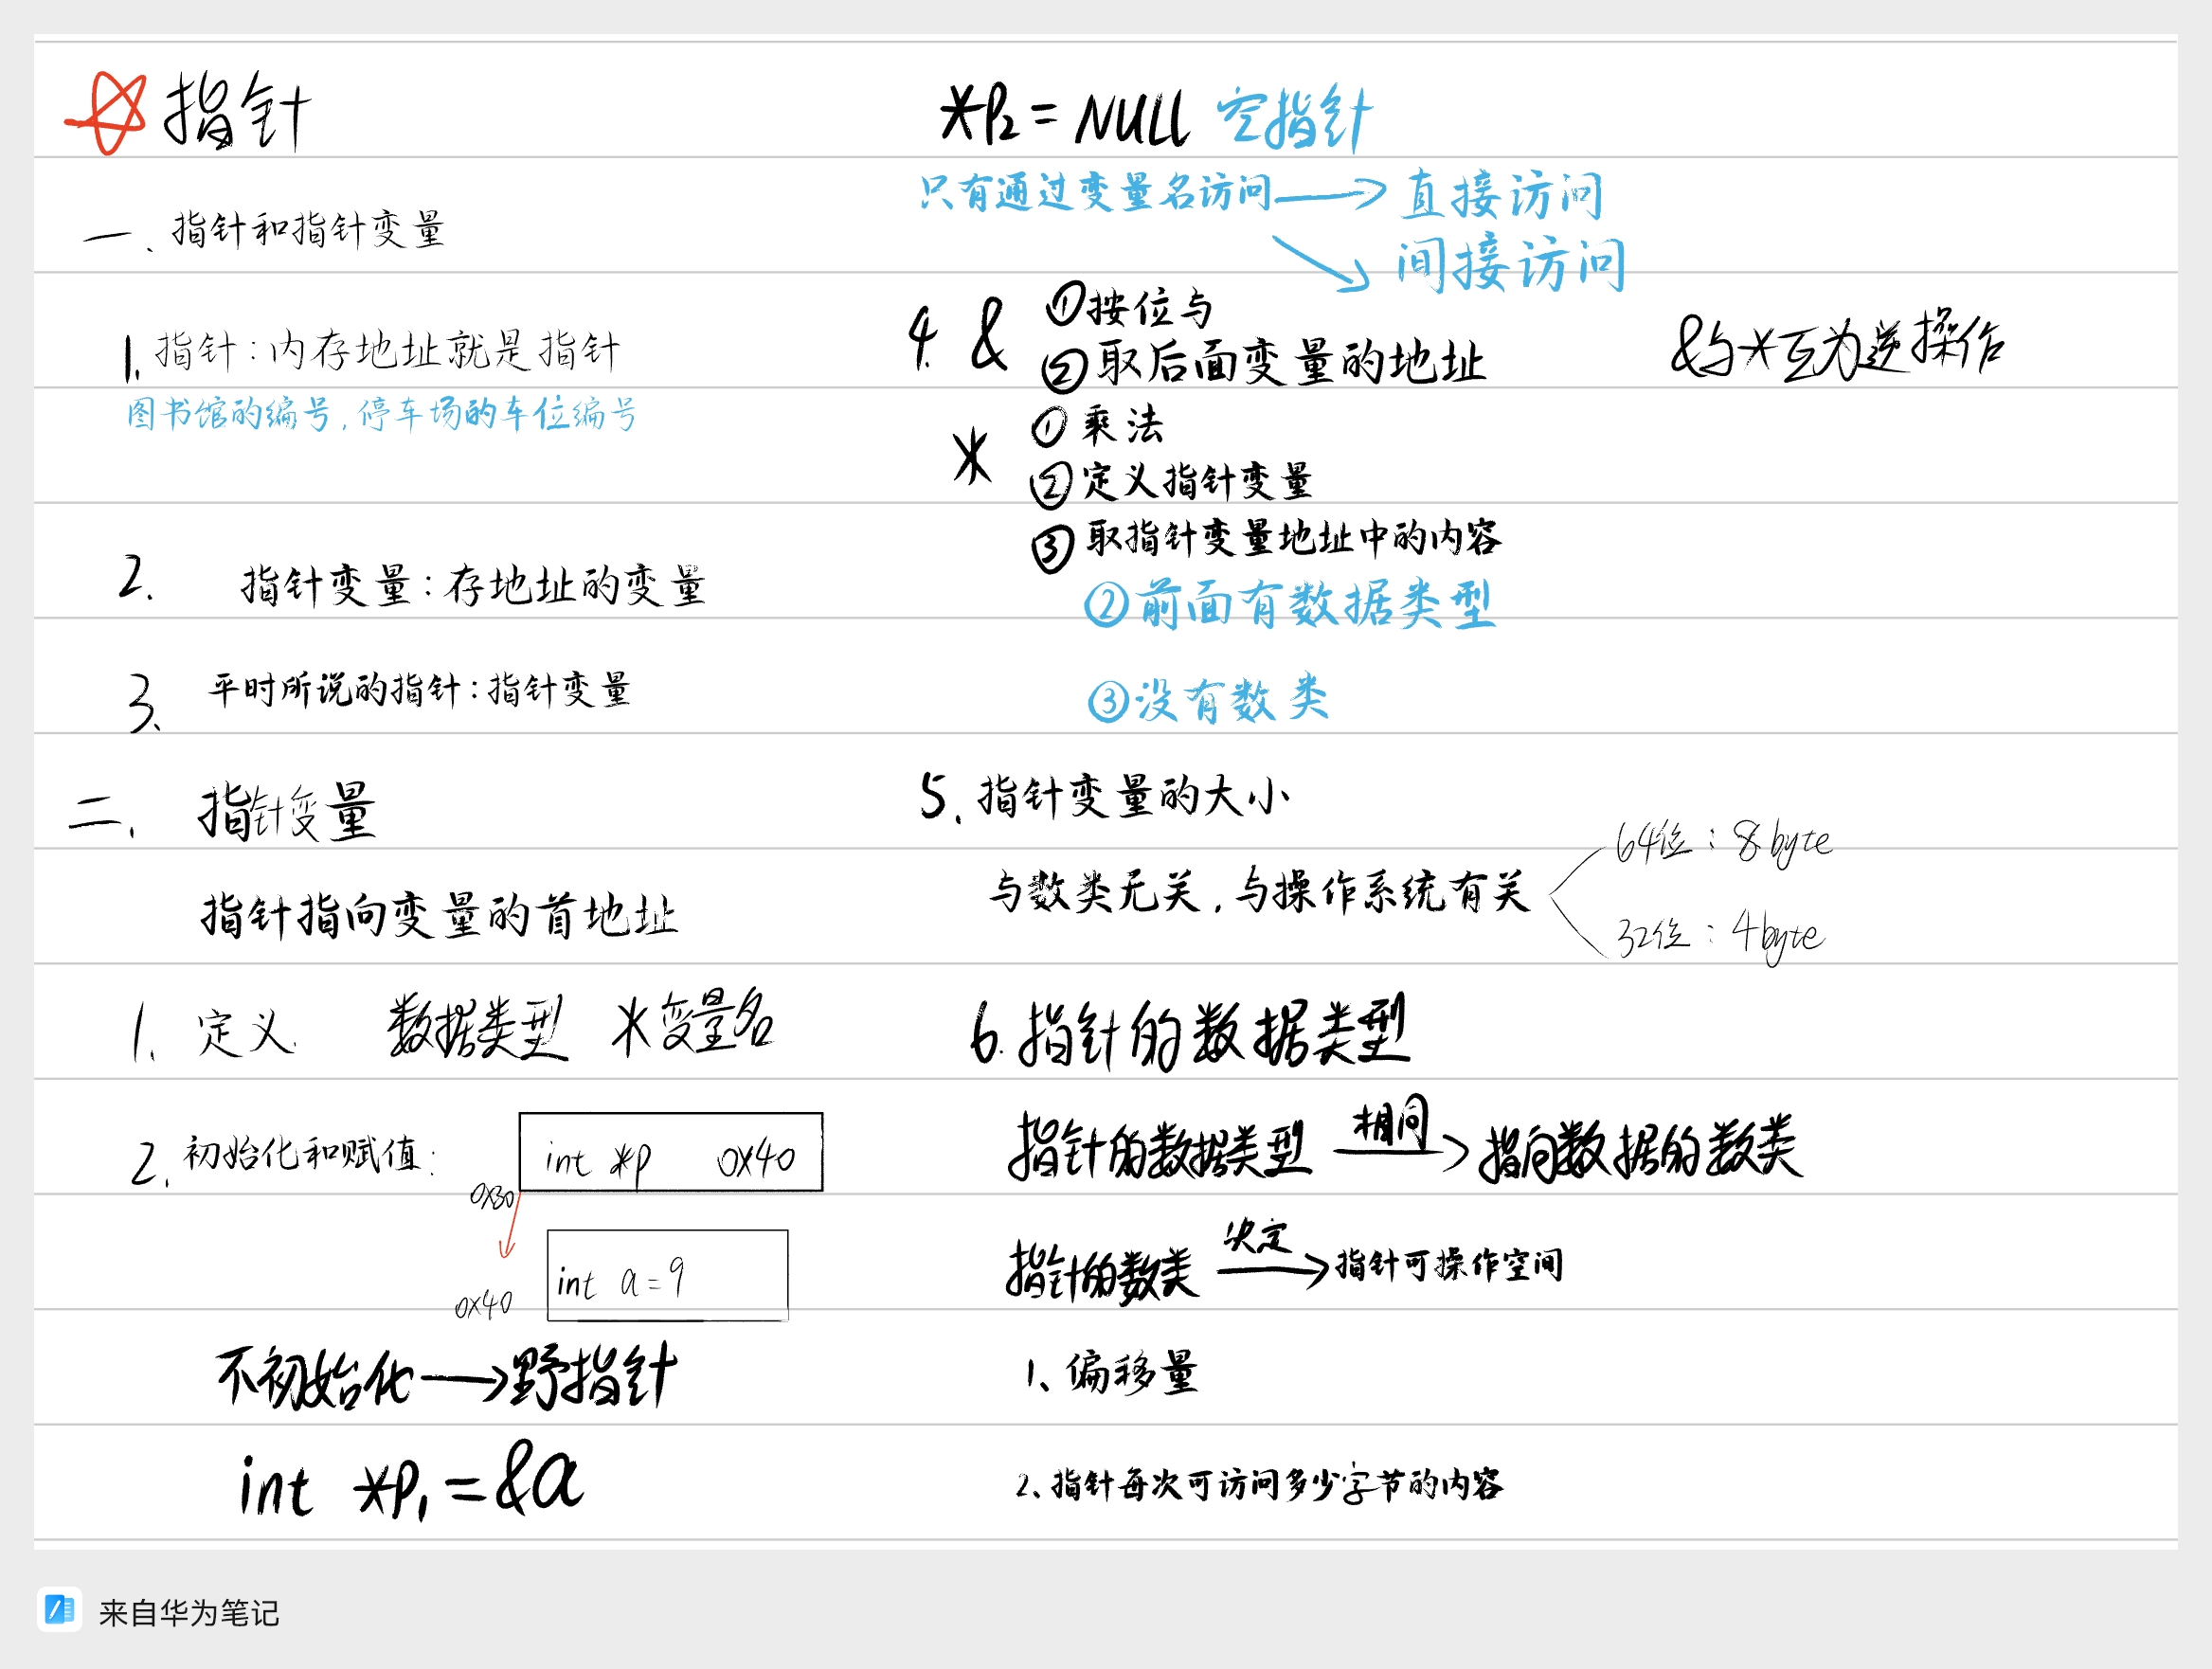 指针
一、指针和指针变量
1. 指针：内存地址就是指针
图书馆的编号，停车场的车位编号
2. 指针变量：存地址的变量
3. 平时所说的指针：指针变量
二、指针变量
指针指向变量的首地址
1. 定义 数据类型 *变量名
2. 初始化和赋值：
int *p 0x40
0x30
int a=9
0x40
不初始化→野指针
int *p₁=&a
*p₂=NULL 空指针
只有通过变量名访问→直接访问
间接访问
4. & ①按位与
②取后面变量的地址
&与*互为逆操作
* ①乘法
②定义指针变量
③取指针变量地址中的内容
②前面有数据类型
③没有数类
5. 指针变量的大小
与数类无关，与操作系统有关
64位：8byte
32位：4byte
6. 指针的数据类型
指针的数据类型 相同→ 指向数据的数类
指针的数类 决定→ 指针可操作空间
1、偏移量
2、指针每次可访问多少字节的内容
来自华为笔记